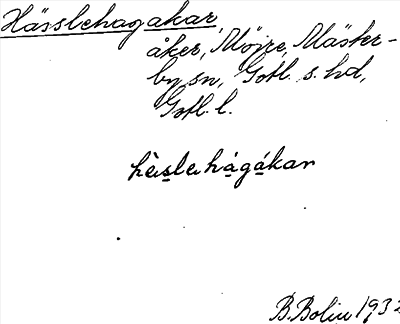 Hässlehagakar,
åker, Mojre, Mäster-
by sn, Gotl. s. hd,
Gotl. l.
hèslahágákar
B. Bolin 1932